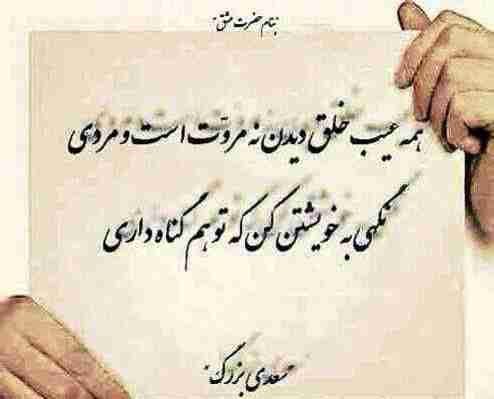 بنام حضرت عشق
همه عیب خلق دیدن نه مروّت است و مردی
نگهی به خویشتن کن که تو هم گناه داری
سعدی بزرگ